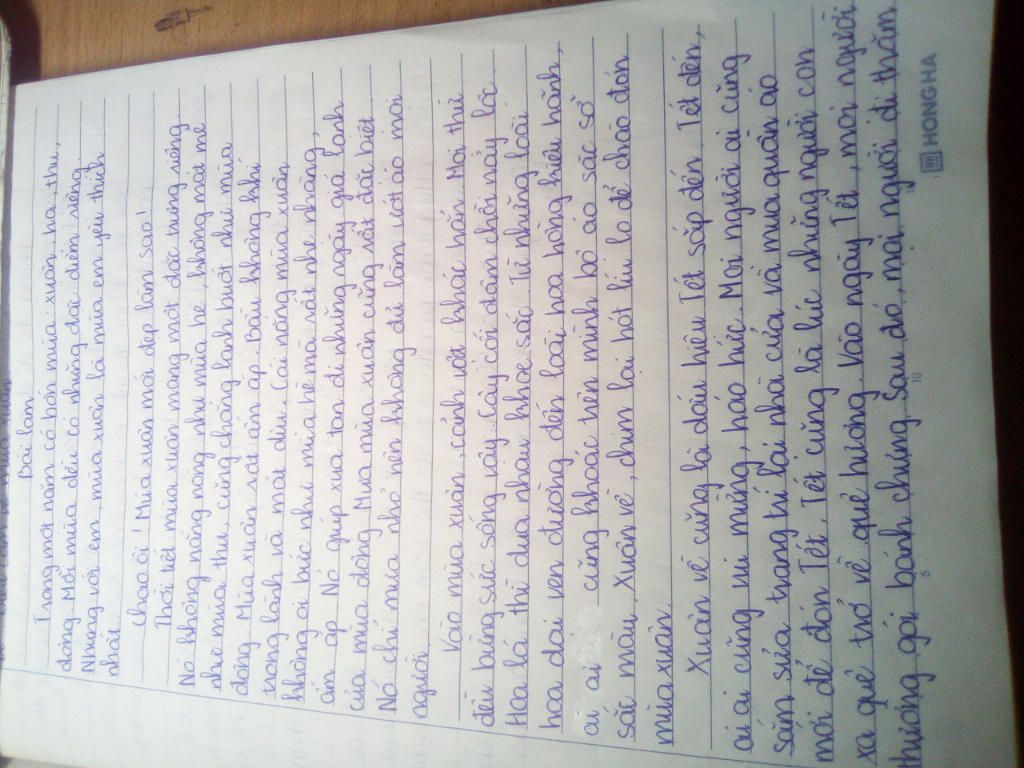 Bài làm
Trong một năm có bốn mùa: xuân, hạ, thu,
đông. Mỗi mùa đều có những đặc điểm riêng.
Nhưng với em, mùa xuân là mùa em yêu thích
nhất.
Chao ôi! Mùa xuân mới đẹp làm sao!
Thời tiết mùa xuân mang một đặc trưng riêng.
Nó không nắng nóng như mùa hè, không mát mẻ
như mùa thu, cũng chẳng lạnh buốt như mùa
đông. Mùa xuân rất ấm áp. Bầu không khí
trong lành và mát dịu. Cái nóng mùa xuân
không oi bức như mùa hè mà rất nhẹ nhàng,
ấm áp. Nó giúp xua tan đi những ngày giá lạnh
của mùa đông. Mưa mùa xuân cũng rất đặc biệt.
Nó chỉ mưa nhỏ nên không đủ làm ướt áo mọi
người.
Vào mùa xuân, cảnh vật khác hẳn. Mọi thứ
đều bừng sức sống vậy. Cây cối đâm chồi nảy lộc.
Hoa lá thi đua nhau khoe sắc. Từ những loài
hoa dại ven đường đến loài hoa hồng kiêu hãnh,
ai ai cũng khoác trên mình bộ áo sặc sỡ
sắc màu. Xuân về, chim lại hót líu lo để chào đón
mùa xuân.
Xuân về cũng là dấu hiệu Tết sắp đến. Tết đến,
ai ai cũng vui mừng, háo hức. Mọi người ai cũng
sắm sửa, trang trí lại nhà cửa và mua quần áo
mới để đón Tết. Tết cũng là lúc những người con
xa quê trở về quê hương. Vào ngày Tết, mọi người
thường gói bánh chưng. Sau đó, mọi người đi thăm
HONG HA
5
10